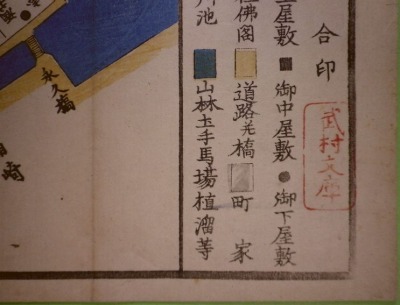 合印
屋敷■御中屋敷●御下屋敷
佛閣 道路并橋 町家
池 山林土手馬場植溜等
武村文庫
永久橋
崎